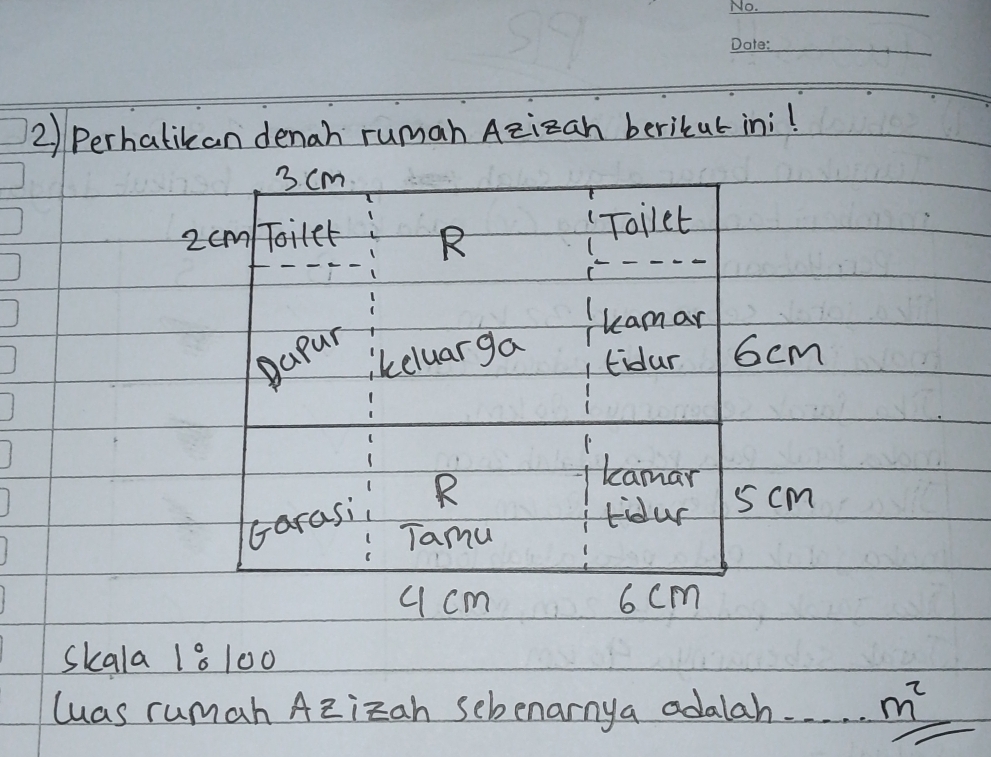 No.
Date:
2) Perhatikan denah rumah Azizah berikut ini!
3 cm
2cm Toilet R Toilet
Dapur keluarga kamar
tidur 6cm
Garasi R
Tamu kamar
tidur 5 cm
4 cm 6 cm
Skala 1:100
Luas rumah Azizah sebenarnya adalah ..... m²